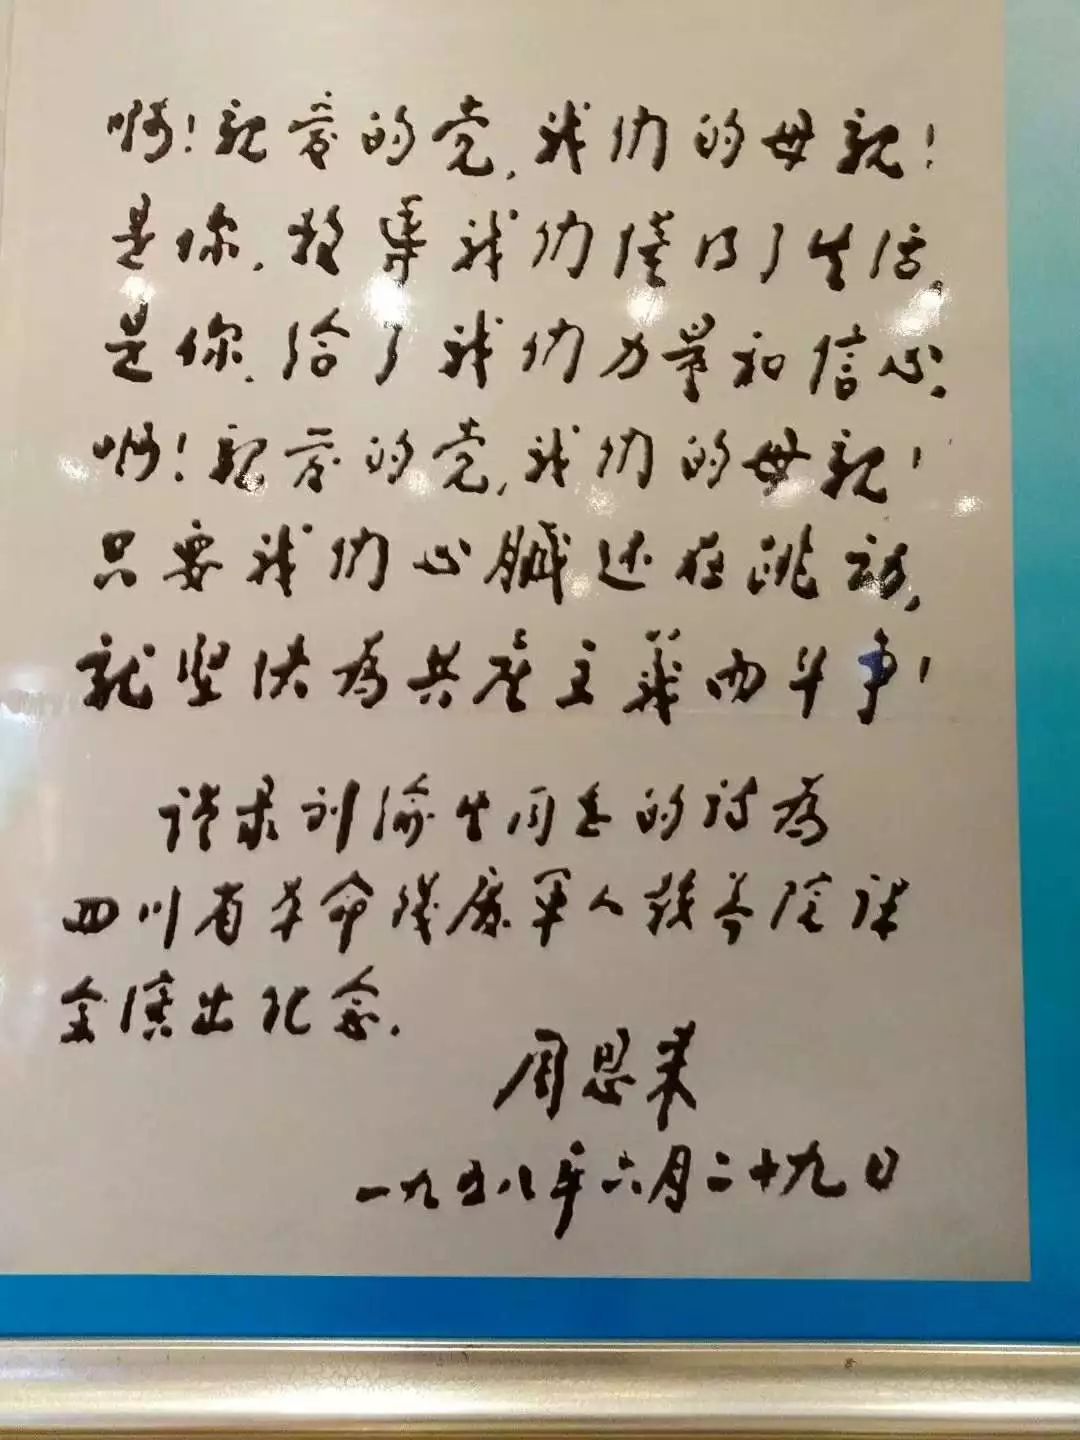 啊！亲爱的党，我们的母亲！
是你，教导我们懂得了生活，
是你，给了我们力量和信心，
啊！亲爱的党，我们的母亲！
只要我们心脏还在跳动，
就坚决为共产主义而斗争！
谨录刘渝生同志的诗为
四川省革命残废军人教养院课
余演出纪念．
周恩来
一九五八年六月二十九日